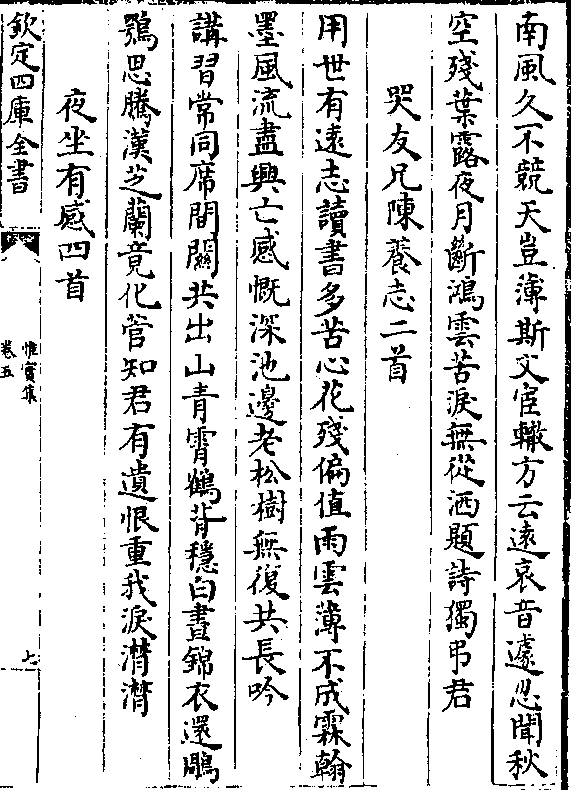 南風久不競天豈薄斯文宦轍方云遠哀音遽忍聞秋
空殘葉露夜月斷鴻雲苦淚無從洒題詩獨弔君
哭友兄陳養志二首
用世有遠志讀書多苦心花殘偏值雨雲薄不成霖翰
墨風流盡興亡感慨深池邊老松樹無復共長吟
講習常同席間關共出山青霄鶴背穩白晝錦衣還鵰
鶚思騰漢芝蘭竟化菅知君有遺恨重我淚潸潸
夜坐有感四首
欽定四庫全書
惟實集
卷五
七